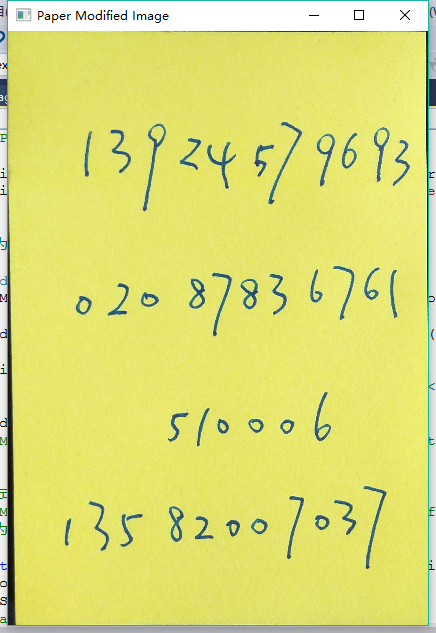 Paper Modified Image
139 24579693
020 8783 6761
510006
135 82007037